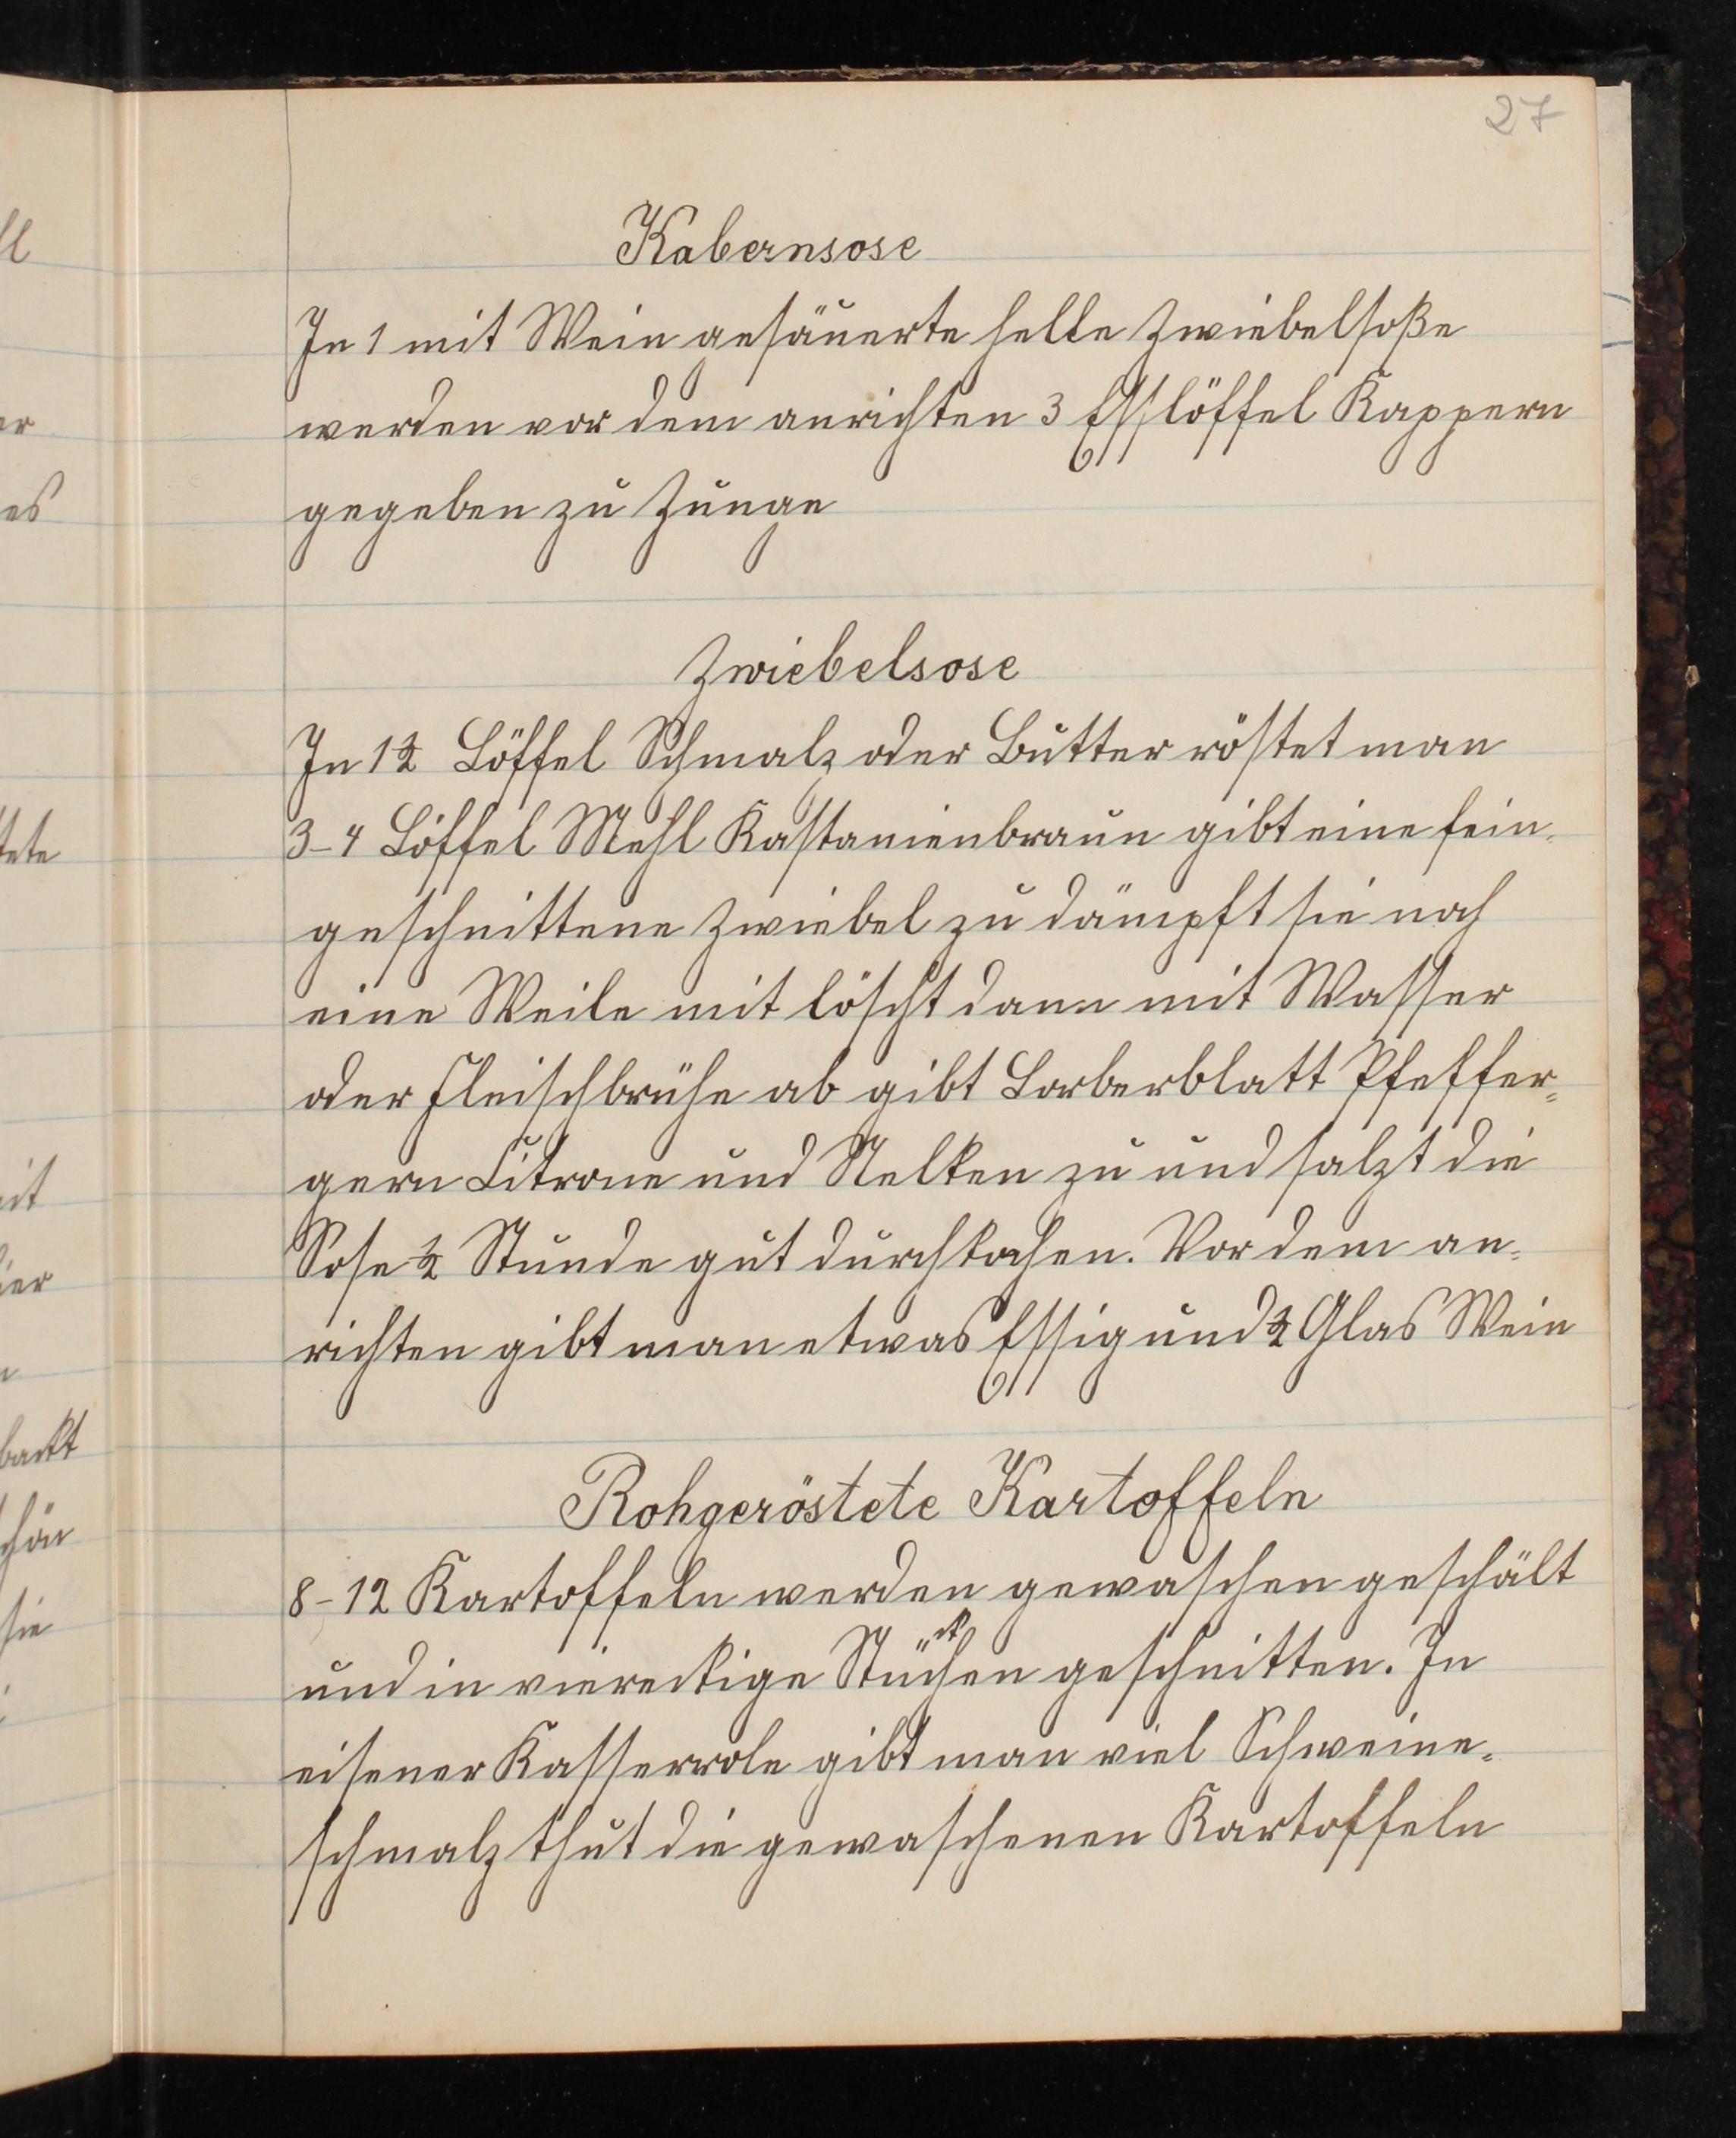 27
Kabernsose
In 1 mit Wein gesäuerte helle Zwiebelsoße
werden vor dem anrichten 3 Esslöffel Kappern
gegeben zu Zunge
Zwiebelsose
In 1½ Löffel Schmalz oder Butter röstet man
3-4 Löffel Mehl Kastanienbraun gibt eine fein-
geschnittene Zwiebel zu dämpft sie noch
eine Weile mit löscht dann mit Wasser
oder Fleischbrühe ab gibt Lorberblatt Pfeffer=
gern Citrone und Nelken zu und salzt die
Sose ½ Stunde gut durchkochen. Vor dem an=
richten gibt man etwas Essig und ½ Glas Wein
Rohgeröstete Kartoffeln
8-12 Kartoffeln werden gewaschen geschält
und in viereckige Stückchen geschnitten. In
eisener Kasserrole gibt man viel Schweine=
schmalz thut die gewaschenen Kartoffeln